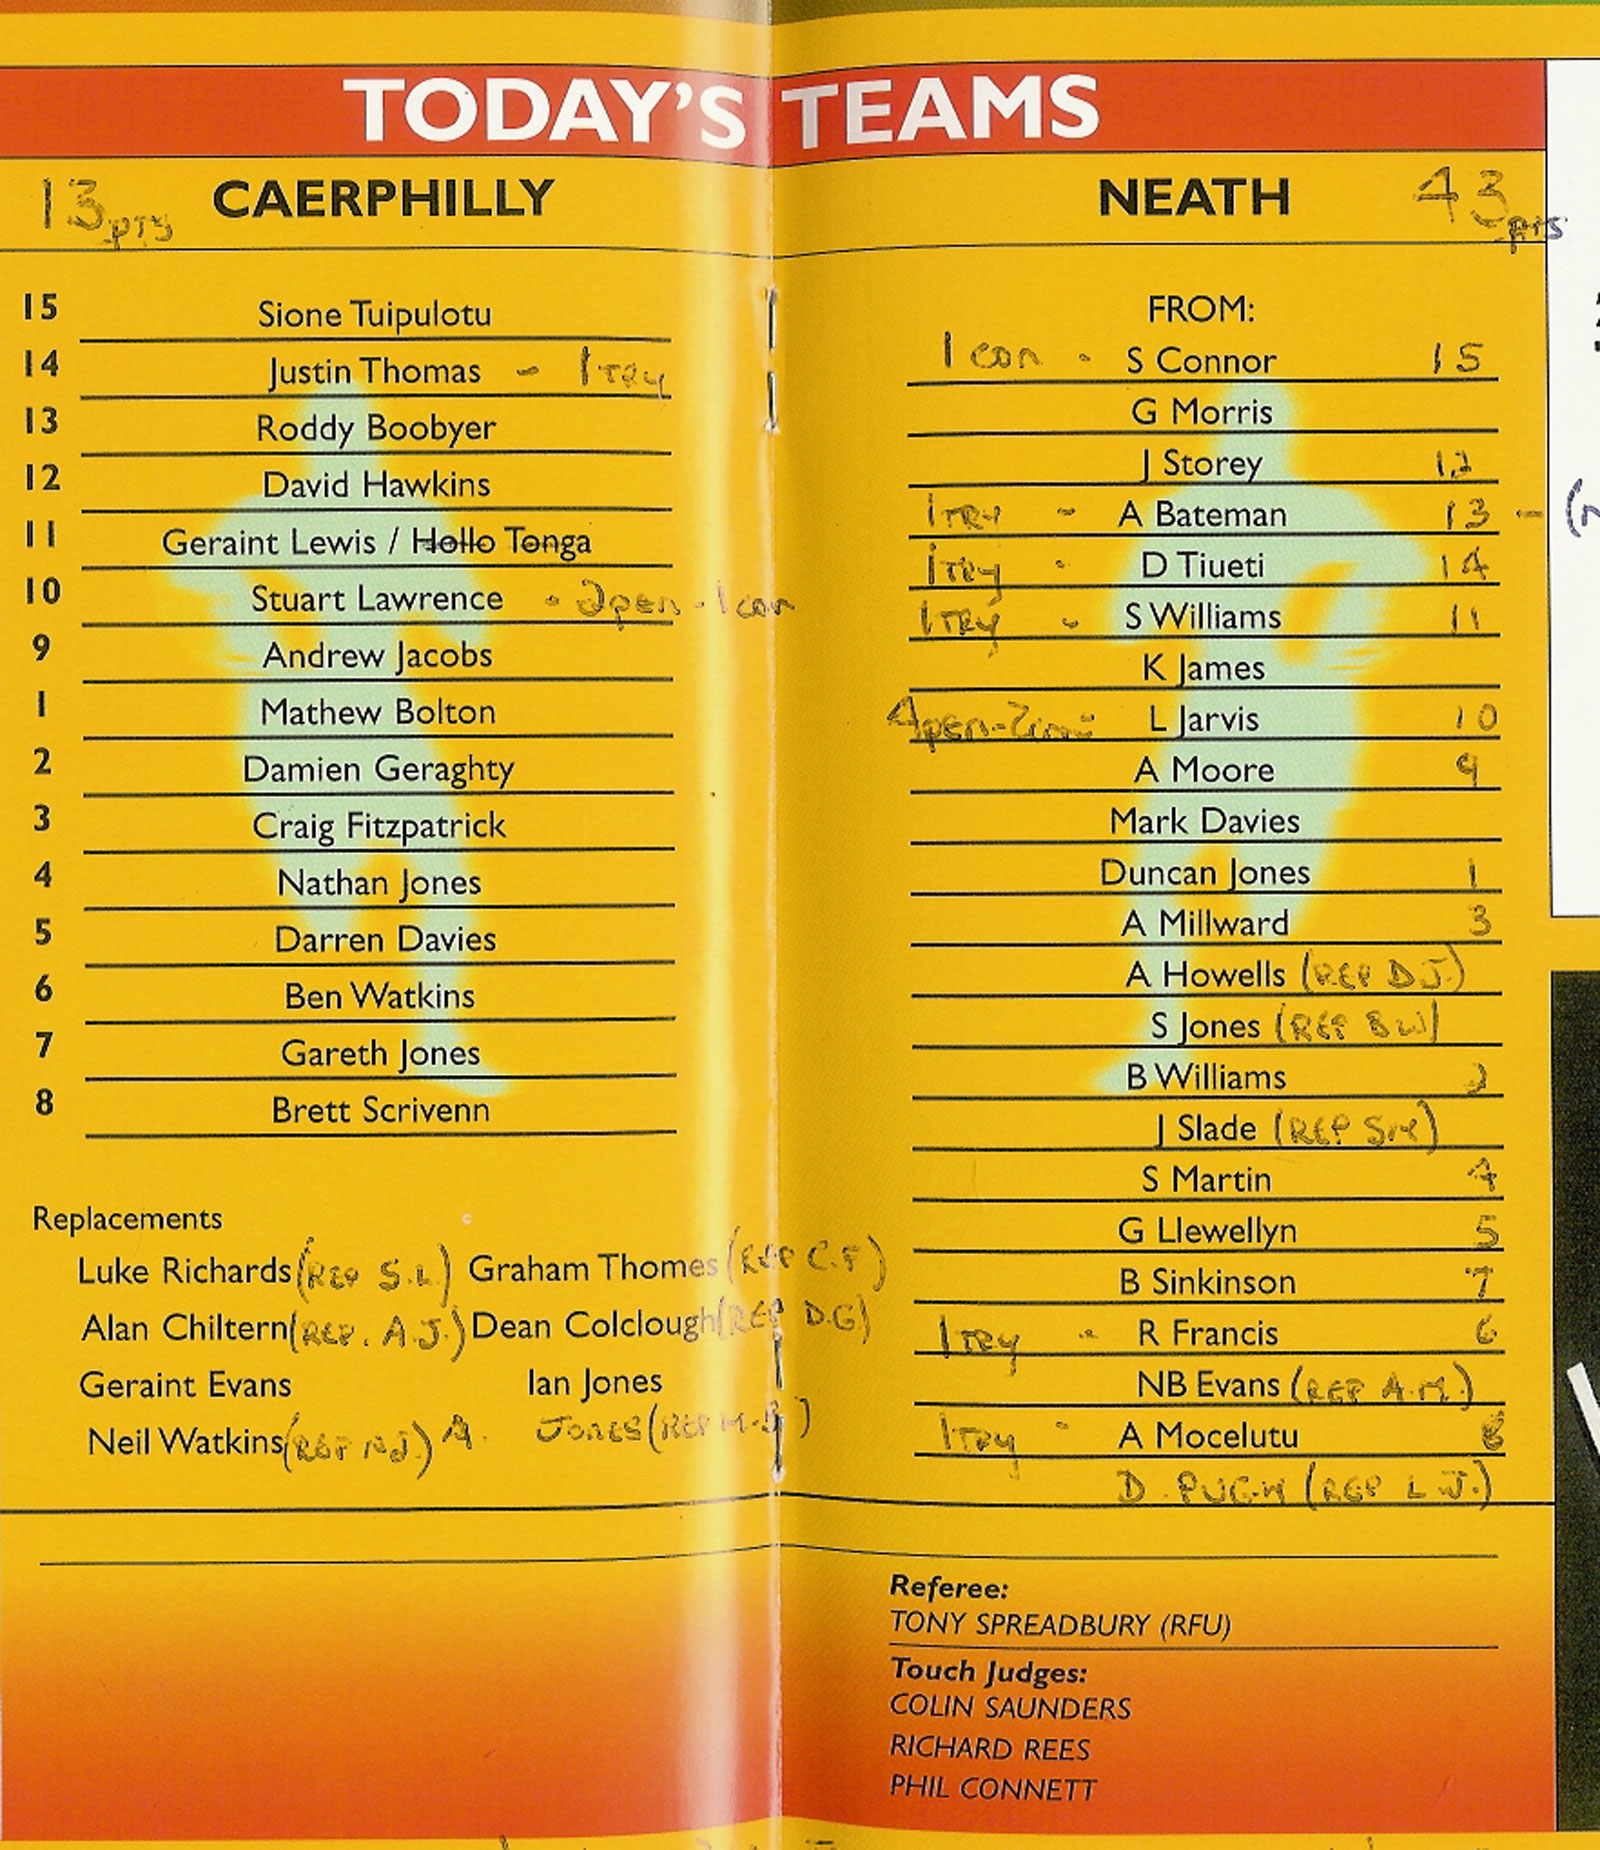 TODAY'S TEAMS
13 pts CAERPHILLY
15 Sione Tuipulotu
14 Justin Thomas - 1 TRY
13 Roddy Boobyer
12 David Hawkins
11 Geraint Lewis / Hollo Tonga
10 Stuart Lawrence - 2pen - 1 con
9 Andrew Jacobs
1 Mathew Bolton
2 Damien Geraghty
3 Craig Fitzpatrick
4 Nathan Jones
5 Darren Davies
6 Ben Watkins
7 Gareth Jones
8 Brett Scrivenn
Replacements
Luke Richards (REP S.L.) Graham Thomes (REP C.F)
Alan Chiltern (REP. A.J.) Dean Colclough (REP D.G)
Geraint Evans Ian Jones
Neil Watkins (REP N.J) A. JONES (REP M.B)
NEATH 43 pts
FROM:
1 con - S Connor 15
G Morris
J Storey 12
1 TRY - A Bateman 13 -
1 TRY - D Tiueti 14
1 TRY - S Williams 11
K James
4pen - L Jarvis 10
A Moore 9
Mark Davies
Duncan Jones 1
A Millward 3
A Howells (REP D.J.)
S Jones (REP B W)
B Williams 2
J Slade (REP S M)
S Martin 4
G Llewellyn 5
B Sinkinson 7
1 TRY - R Francis 6
NB Evans (REP A.M.)
1 TRY - A Mocelutu 8
D. PUGH (REP L.J.)
Referee:
TONY SPREADBURY (RFU)
Touch Judges:
COLIN SAUNDERS
RICHARD REES
PHIL CONNETT